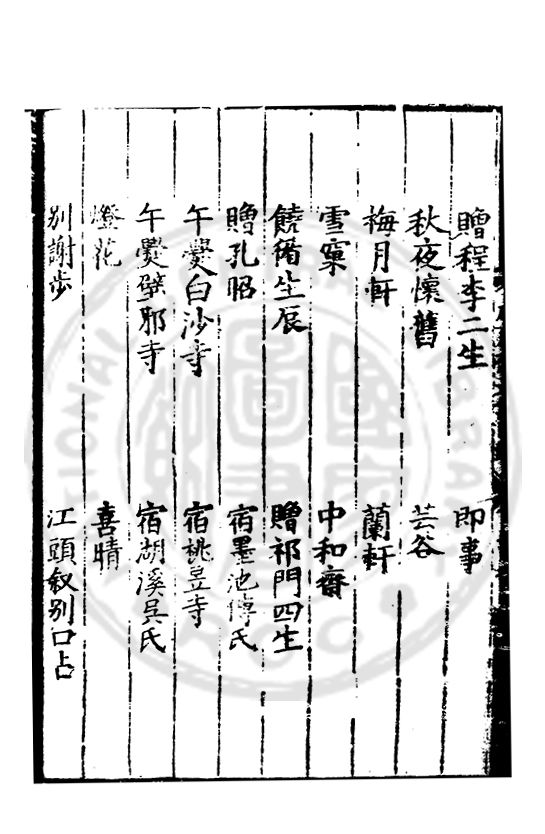 贈程李二生　即事
秋夜懷舊　芸谷
梅月軒　蘭軒
雪窠　中和齋
饒脩生辰　贈祁門四生
贈孔昭　宿墨池傅氏
午爨白沙寺　宿桃昱寺
午爨壁耶寺　宿湖溪吳氏
燈花　喜晴
別謝步　江頭叙別口占